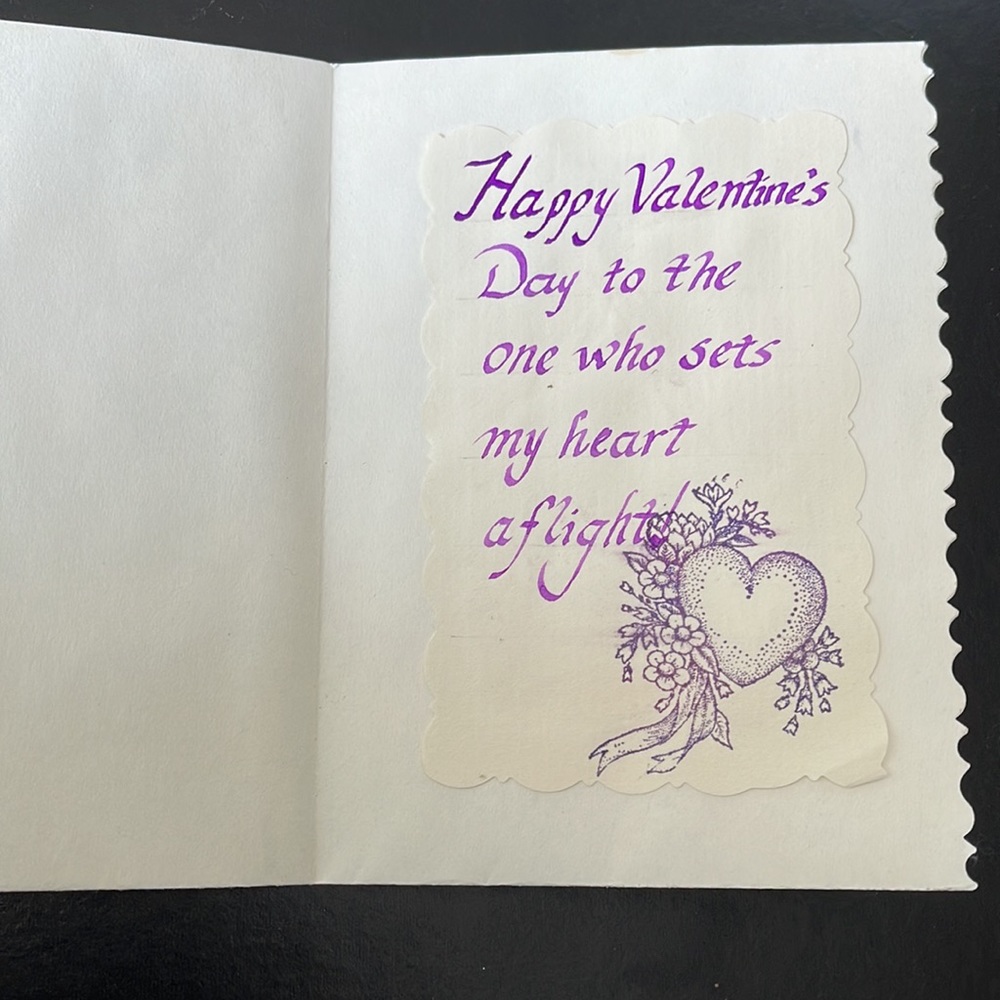 Happy Valentine's
Day to the
one who sets
my heart
aflight!